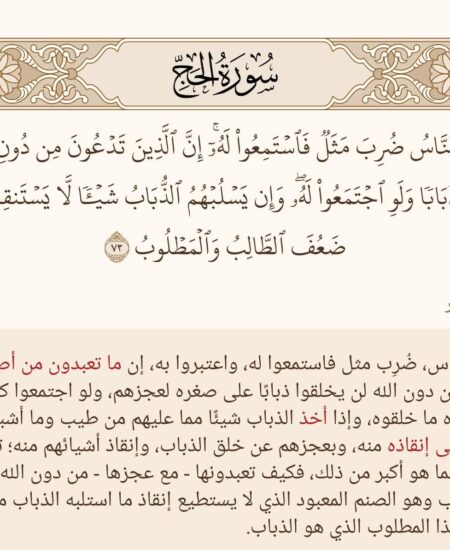 سُورَةُ الحَجِّ
نَّاسُ ضُرِبَ مَثَلٌ فَٱسْتَمِعُوا۟ لَهُۥٓ ۚ إِنَّ ٱلَّذِينَ تَدْعُونَ مِن دُونِ
ذُبَابًا وَلَوِ ٱجْتَمَعُوا۟ لَهُۥ ۖ وَإِن يَسْلُبْهُمُ ٱلذُّبَابُ شَيْـًٔا لَّا يَسْتَنقِ
ضَعُفَ ٱلطَّالِبُ وَٱلْمَطْلُوبُ ٧٣
س، ضُرِب مثل فاستمعوا له، واعتبروا به، إن ما تعبدون من أص
ن دون الله لن يخلقوا ذبابًا على صغره لعجزهم، ولو اجتمعوا ك
ه ما خلقوه، وإذا أخذ الذباب شيئًا مما عليهم من طيب وما أشب
ى إنقاذه منه، وبعجزهم عن خلق الذباب، وإنقاذ أشيائهم منه؛ ت
ما هو أكبر من ذلك، فكيف تعبدونها - مع عجزها - من دون الله
ب وهو الصنم المعبود الذي لا يستطيع إنقاذ ما استلبه الذباب م
ذا المطلوب الذي هو الذباب.